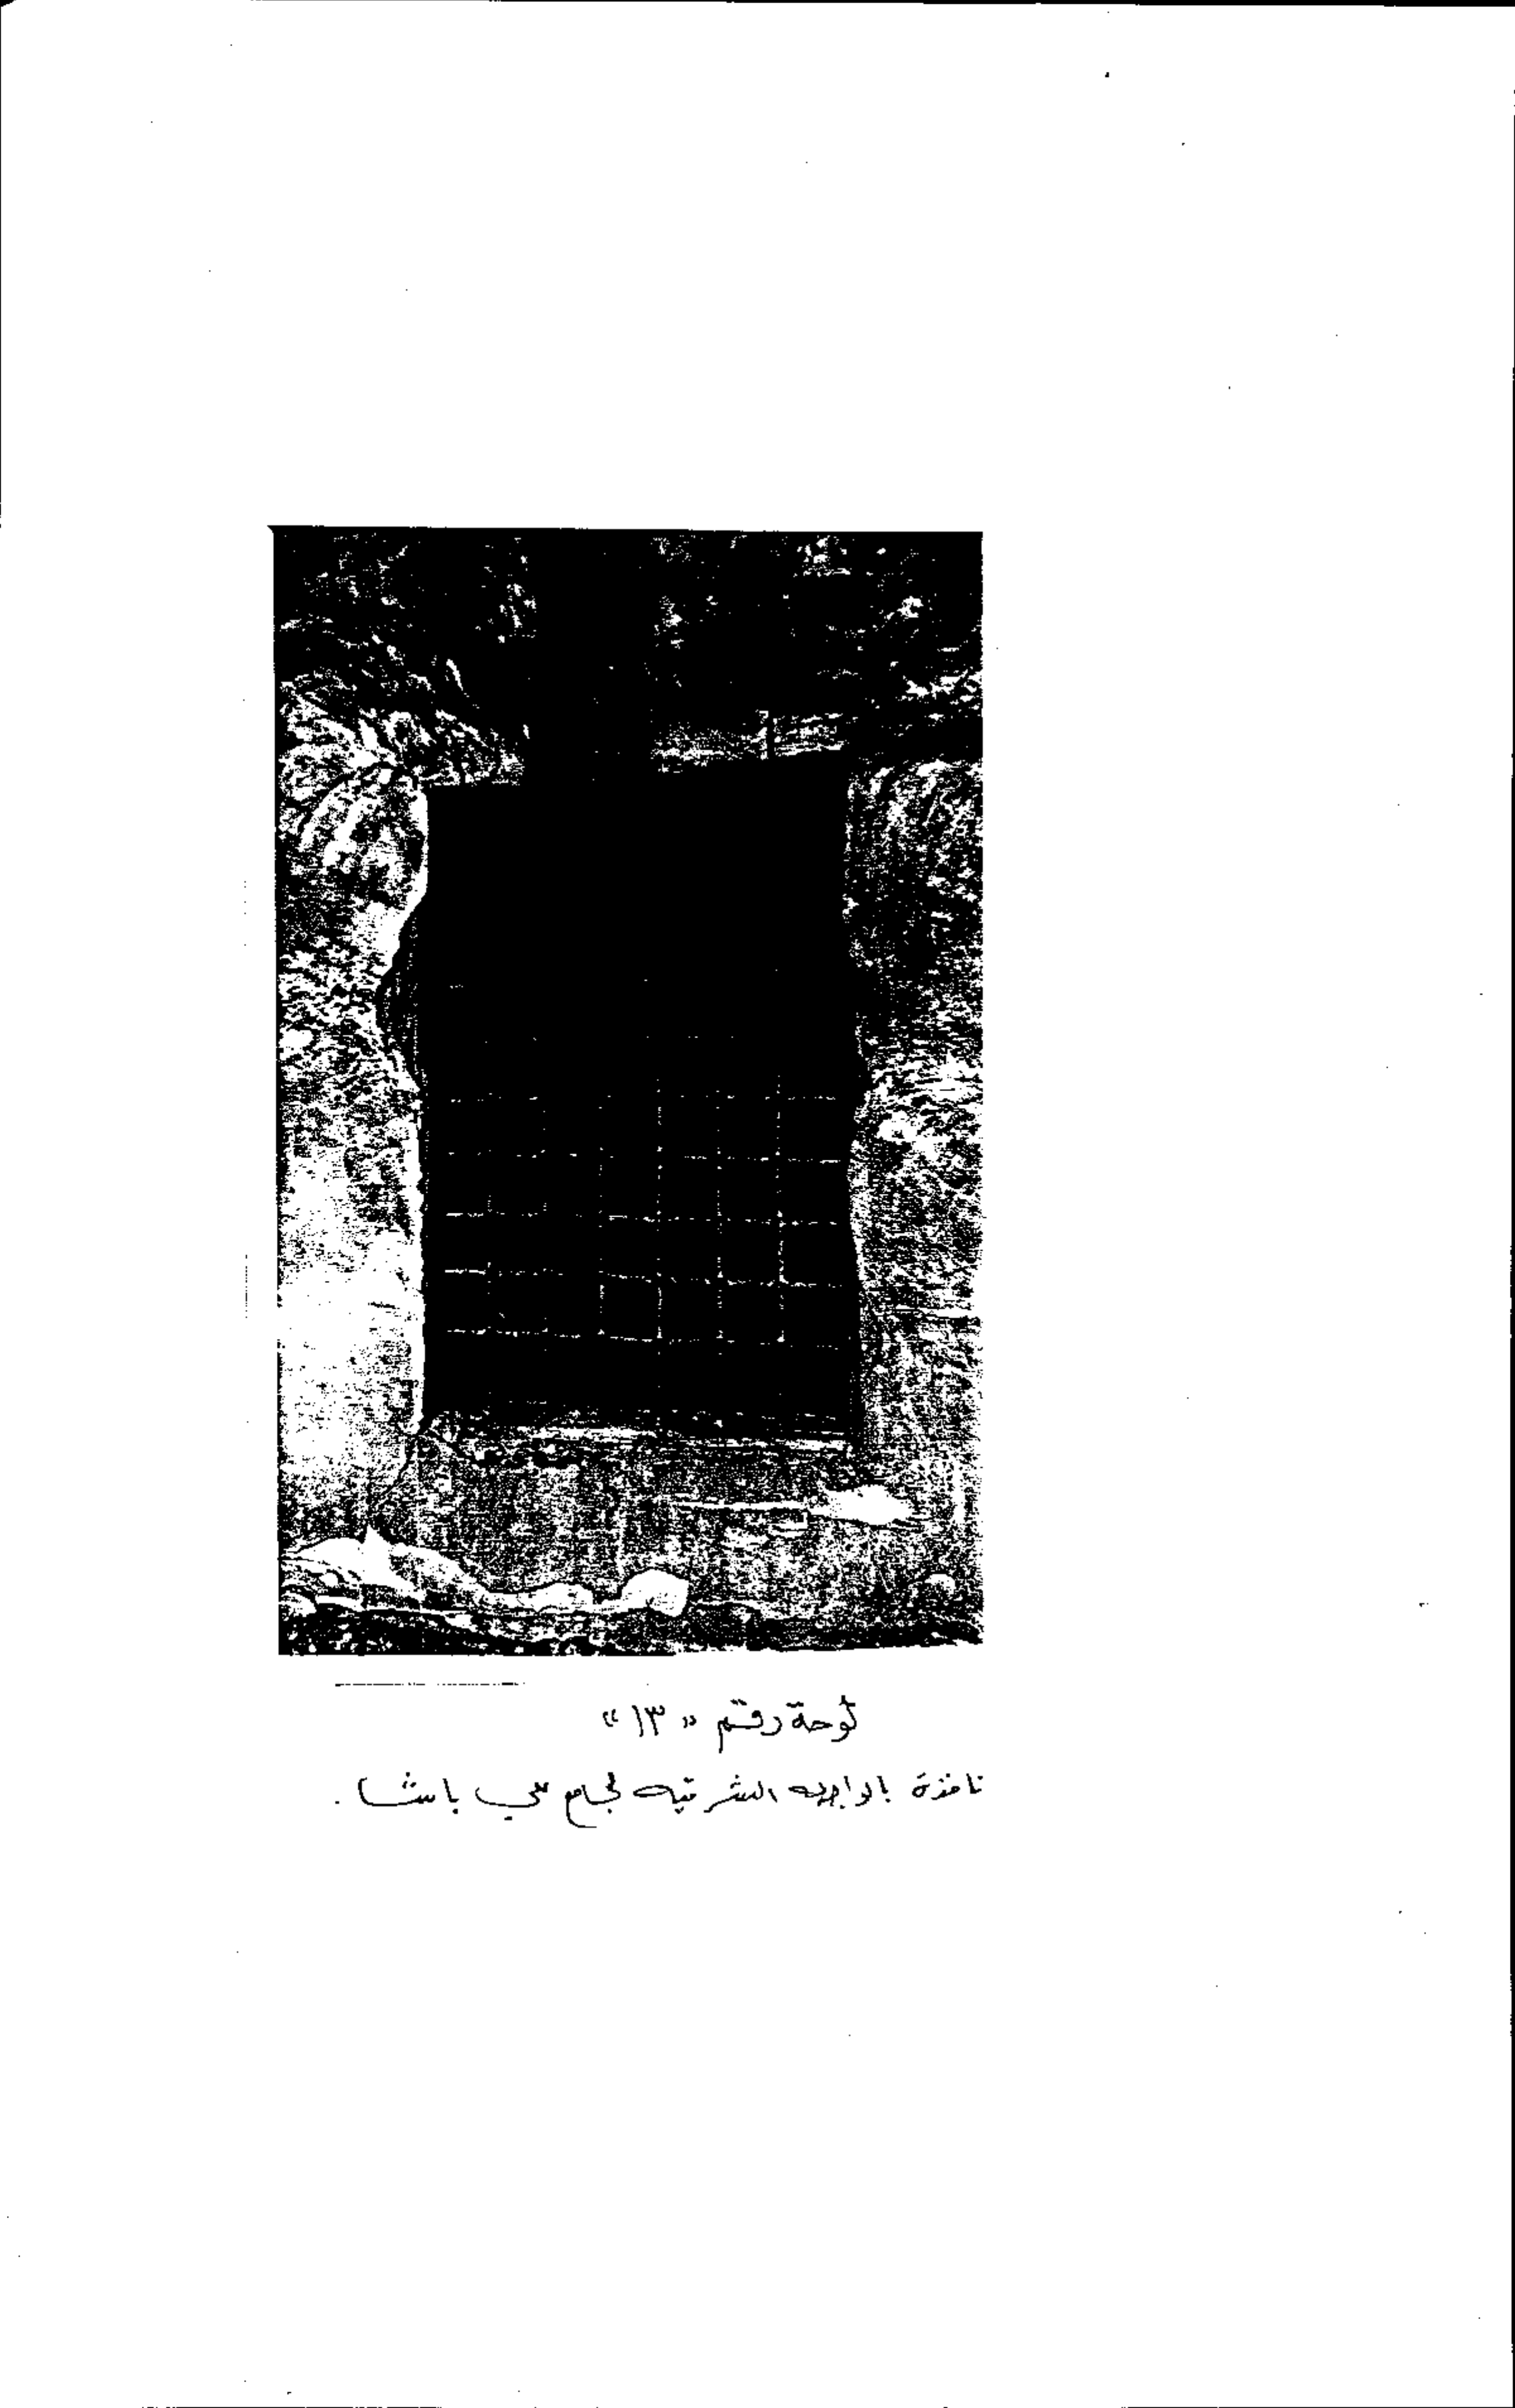 لوحة رقم «١٣»
نافذة بالواجهه الشرقيه لجامع علي باشا .